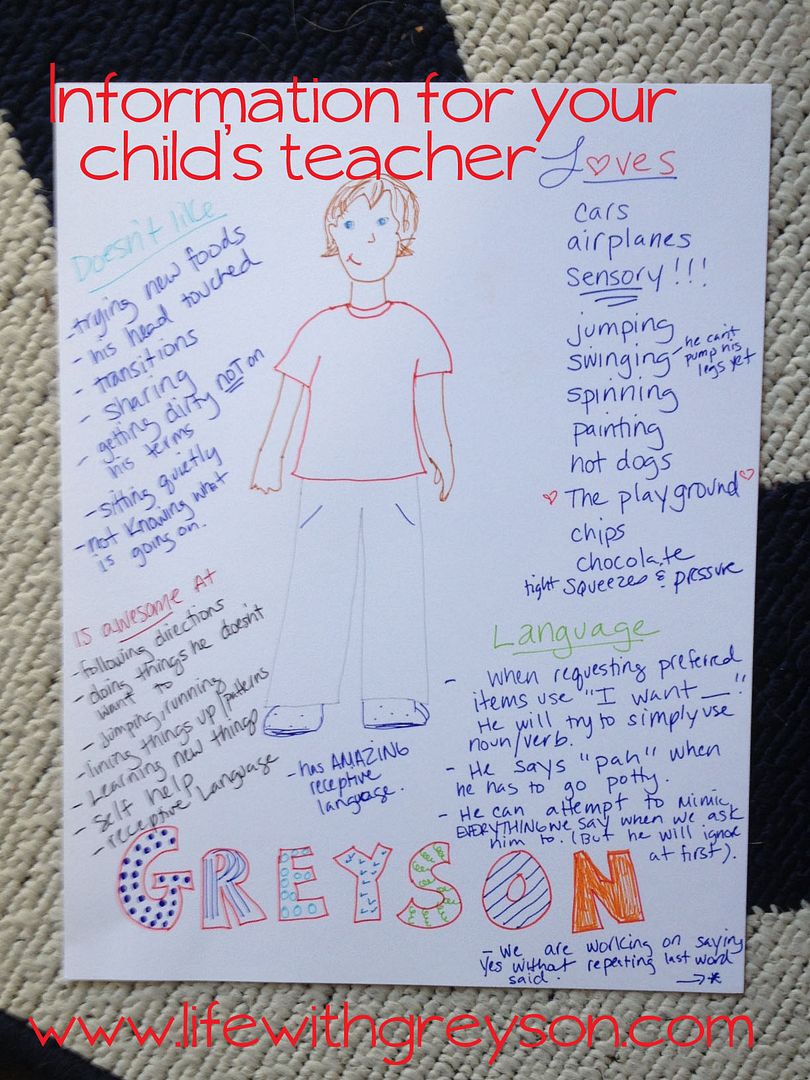 Information for your
child's teacher
Doesn't like
- trying new foods
- his head touched
- transitions
- sharing
- getting dirty NOT on
his terms
- sitting quietly
- not knowing what
is going on.
Loves
cars
airplanes
Sensory!!!
jumping
swinging - he can't
pump his
legs yet
spinning
painting
hot dogs
The playground
chips
chocolate
tight squeezes & pressure
is awesome At
- following directions
- doing things he doesn't
want to
- jumping, running
- lining things up/patterns
- Learning new things
- Self help
- receptive Language
- has AMAZING
receptive
language.
Language
- when requesting preferred
items use "I want __".
He will try to simply use
noun/verb.
- He says "pah" when
he has to go potty.
- He can attempt to mimic
EVERYTHING we say when we ask
him to. (But he will ignore
at first).
GREYSON
- we are working on saying
yes without repeating last word
said. → *
www.lifewithgreyson.com